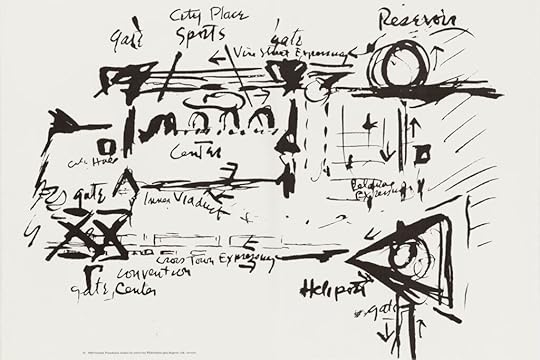 City Place
Sports
gate
gate
Vine Street Expressway
Reservoir
Center
City Hall
gate
Inner Viaduct
Cross Town Expressway
Convention
Center
gate
Heliport
gate